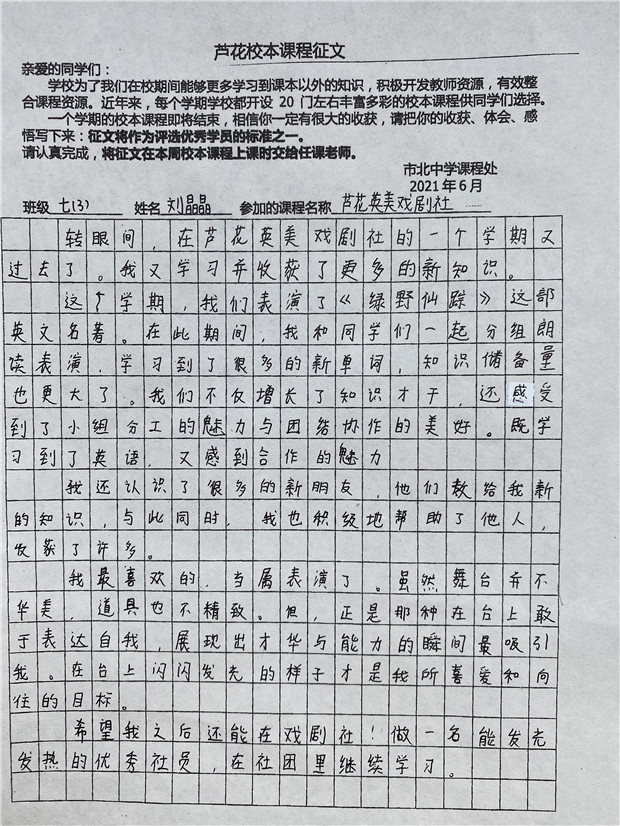 芦花校本课程征文
亲爱的同学们：
学校为了我们在校期间能够更多学习到课本以外的知识，积极开发教师资源，有效整
合课程资源。近年来，每个学期学校都开设 20 门左右丰富多彩的校本课程供同学们选择。
一个学期的校本课程即将结束，相信你一定有很大的收获，请把你的收获、体会、感
悟写下来：征文将作为评选优秀学员的标准之一。
请认真完成，将征文在本周校本课程上课时交给任课老师。
市北中学课程处
2021 年 6 月
班级 七(3) 姓名 刘晶晶 参加的课程名称 芦花英美戏剧社
转眼间，在芦花英美戏剧社的一个学期又
过去了。我又学习并收获了更多的新知识。
这个学期，我们表演了《绿野仙踪》这部
英文名著。在此期间，我和同学们一起分组朗
读表演，学习到了很多的新单词，知识储备量
也更大了。我们不仅增长了知识才干，还感受
到了小组分工的魅力与团结协作的美好。既学
习到了英语，又感到合作的魅力
我还认识了很多的新朋友，他们教给我新
的知识，与此同时，我也积极地帮助了他人，
收获了许多。
我最喜欢的，当属表演了。虽然舞台并不
华美，道具也不精致。但，正是那种在台上敢
于表达自我，展现出才华与能力的瞬间最吸引
我。在台上闪闪发光的样子才是我所喜爱和向
往的目标。
希望我之后还能在戏剧社！做一名能发光
发热的优秀社员，在社团里继续学习。